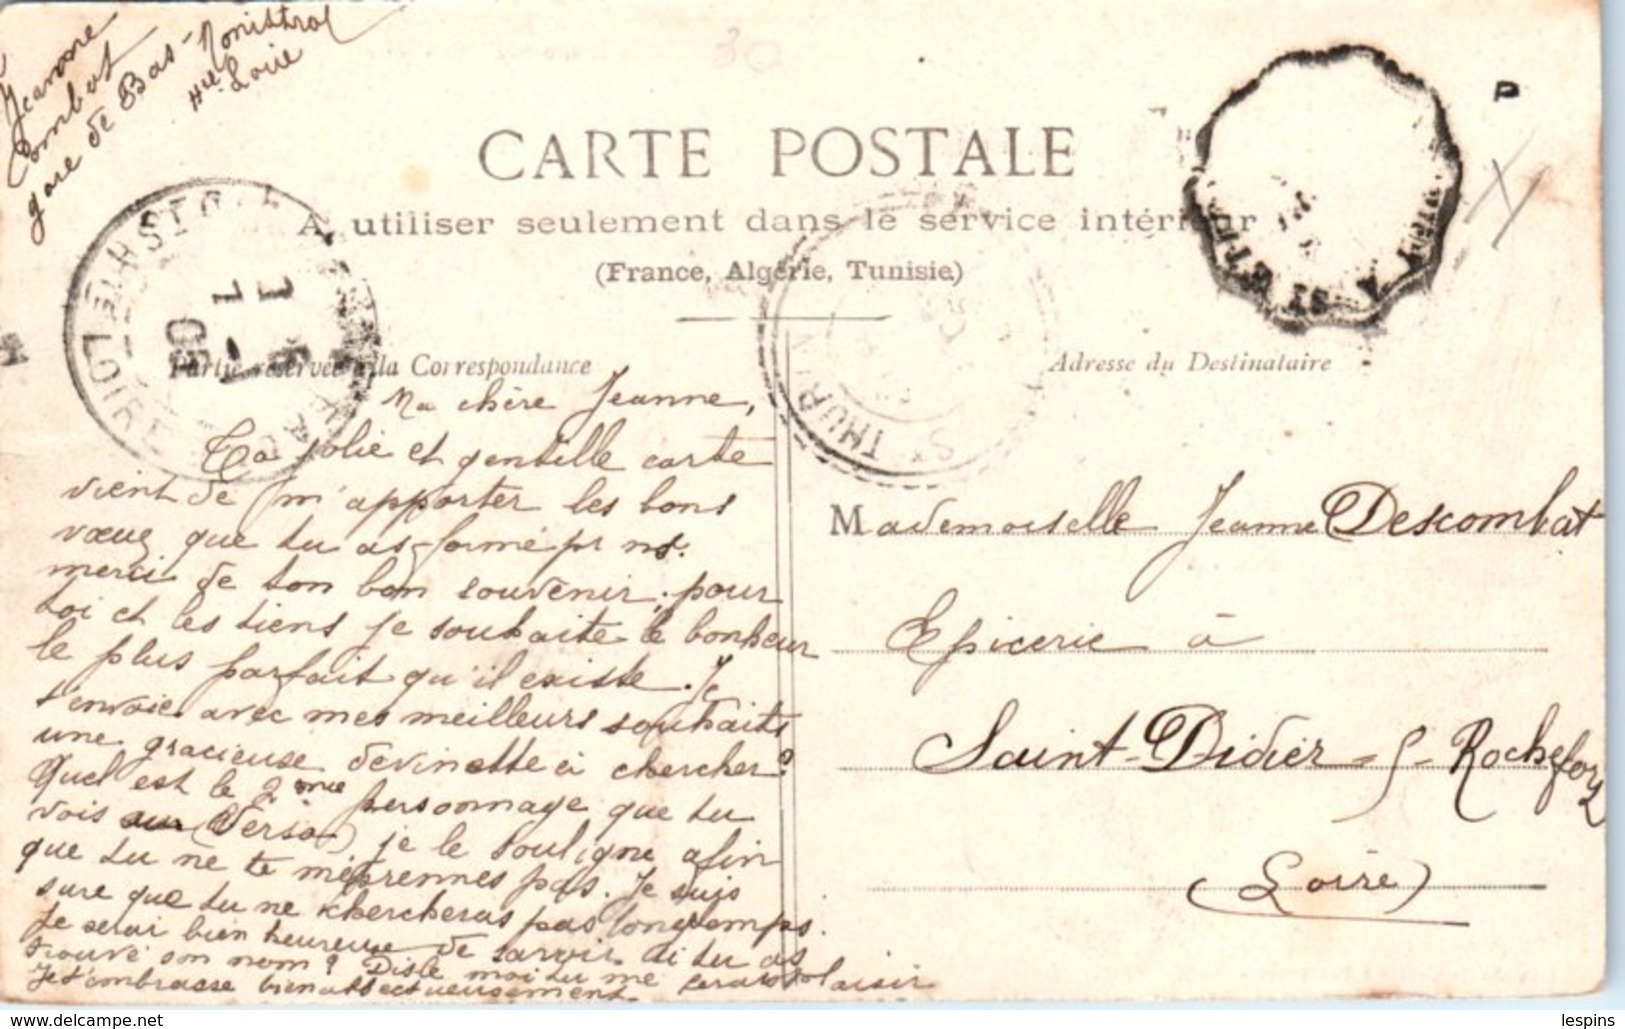 Jeanne
Combat
gare de Bas-Monistrol
Hte Loire
30
P
CARTE POSTALE
A utiliser seulement dans le service intérieur
(France, Algérie, Tunisie)
Partie réservée à la Correspondance
Adresse du Destinataire
ST THURIN
LOIRE
1
7 -1
05
Ma chère Jeanne,
Ta jolie et gentille carte
vient de m'apporter les bons
vœux que tu as formé pr ns.
merci de ton bon souvenir, pour
toi et les tiens je souhaite le bonheur
le plus parfait qu'il existe. Je
t'envoie avec mes meilleurs souhaits
une gracieuse devinette à chercher?
Quel est le 2me personnage que tu
vois (Verso) je le souligne afin
que tu ne te méprennes pas. Je suis
sure que tu ne chercheras pas longtemps.
Je serai bien heureuse de savoir si tu as
trouvé son nom? Dis le moi tu me feras plaisir
Je t'embrasse bien affectueusement
Mademoiselle Jeanne Descombat
Epicerie à
Saint-Didier-s-Rochefort
(Loire)
lespins